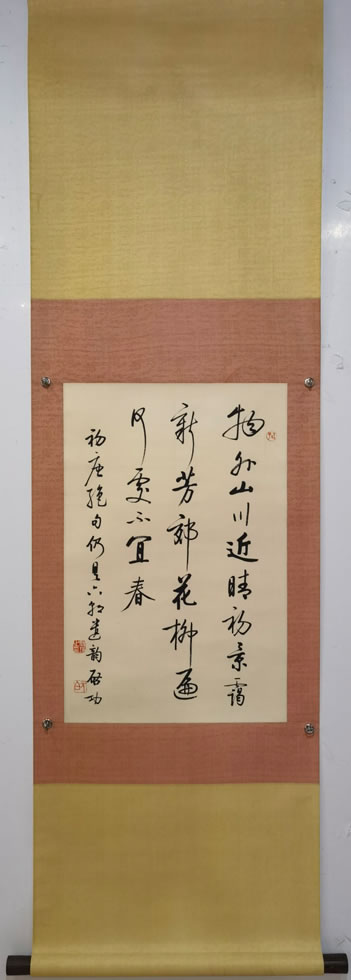 物外山川近晴初景霭
新芳郊花柳遍
何处不宜春
初唐绝句仍是六朝遗韵启功